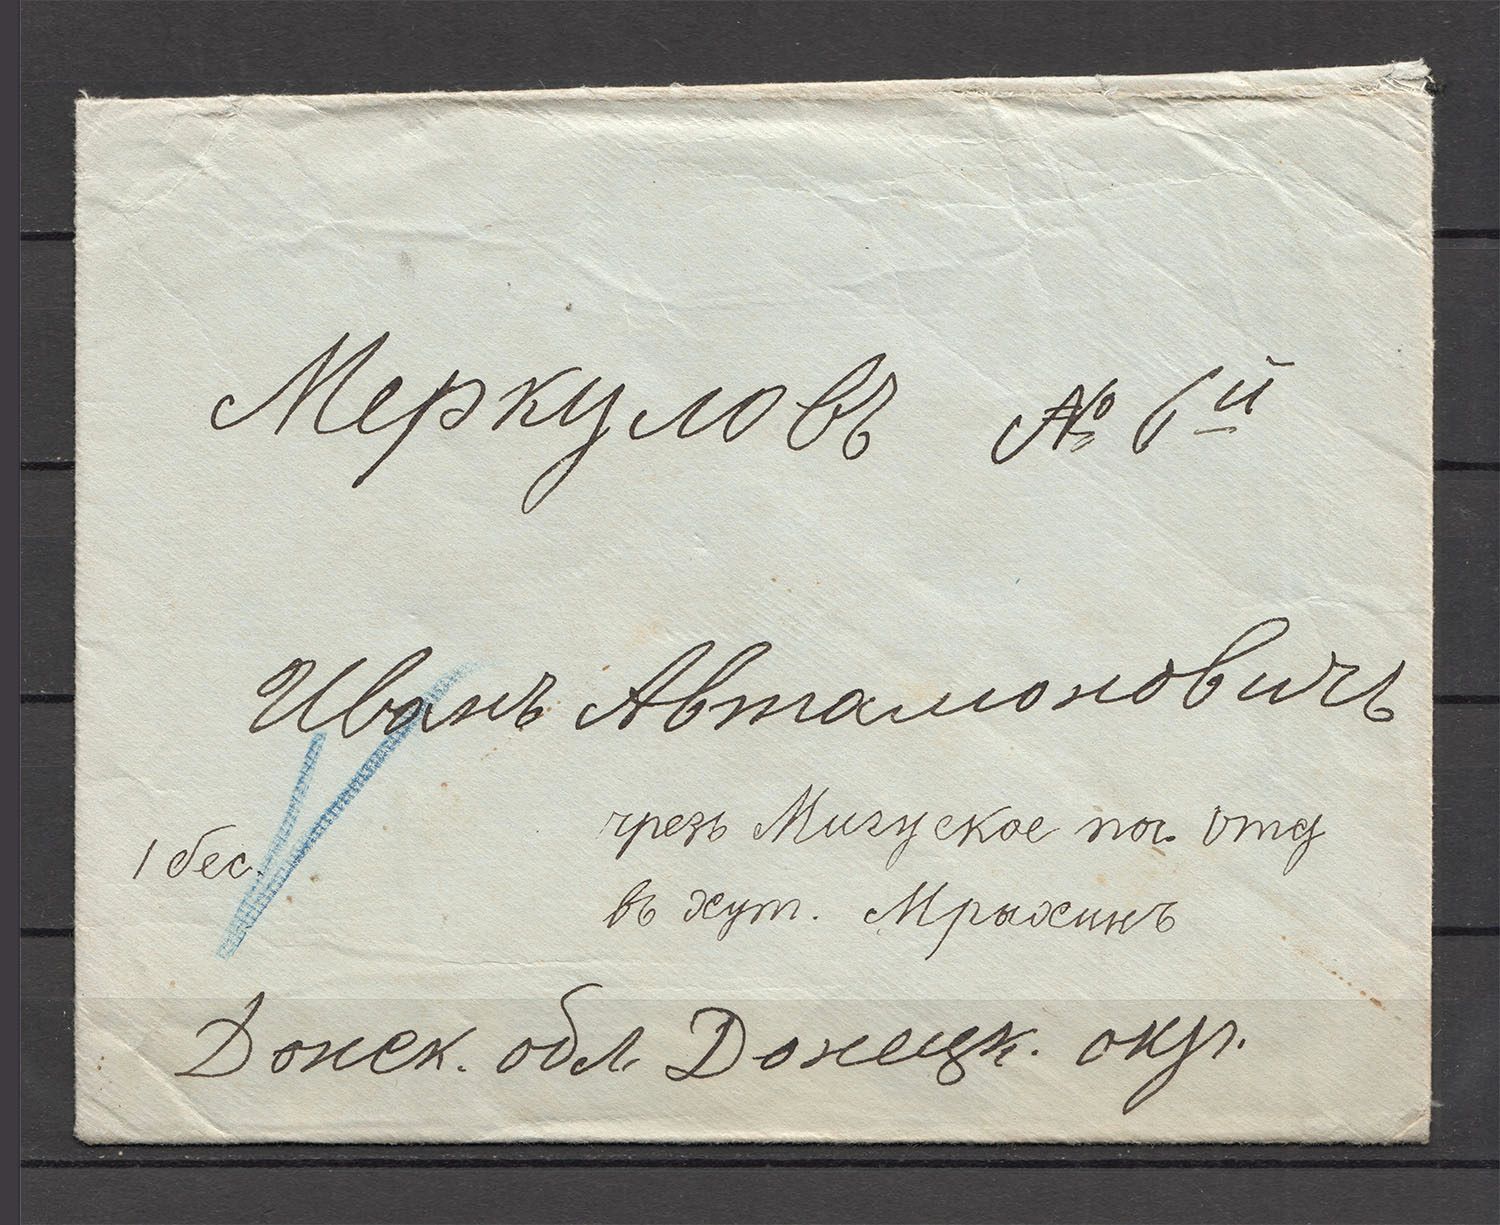 Меркуловъ № 1й
Иванъ Автамоновичъ
чрезъ Мигуское поч. отд
1 бес.
въ хут. Мрыхинъ
Донск. обл. Донецк. окр.